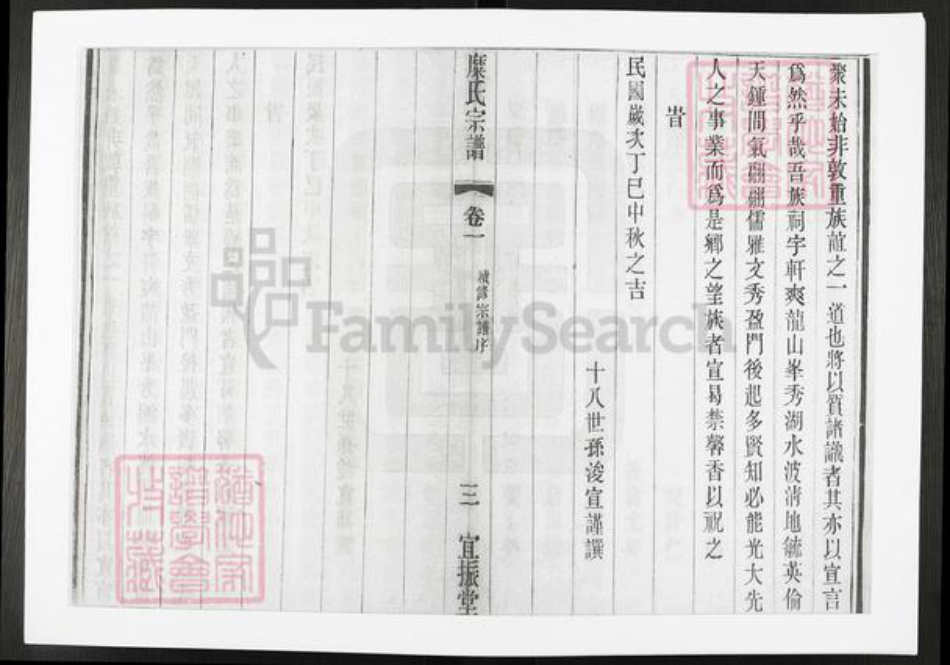 聚未始非敦重族誼之一道也將以質諸識者其亦以宣言
爲然乎哉吾族祠宇軒爽龍山峯秀湖水波淸地毓英倫
天鍾間氣翩翩儒雅文秀盈門後起多賢知必能光大先
人之事業而爲是鄉之望族者宣曷禁馨香以祝之
旹
民國歲次丁巳中秋之吉
十八世孫浚宣謹譔
糜氏宗譜
卷一
續修宗譜序
三
宜振堂
FamilySearch